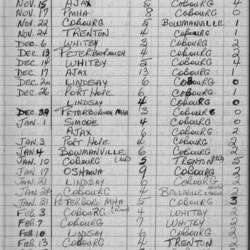 NOV. 15 AJAX 5 COBOURG 4
NOV. 17 OMHA 8 COBOURG 0
NOV. 22 COBOURG 5 BOWMANVILLE 1
NOV. 24 TRENTON 4 COBOURG 1
DEC. 6 WHITBY 3 COBOURG 2
DEC. 13 PETERBOROUGH 4 COBOURG 2
DEC. 14 WHITBY 5 COBOURG 4
DEC. 17 AJAX 13 COBOURG 2
DEC. 20 LINDSAY 6 COBOURG 0
DEC. 26 PORT HOPE 6 COBOURG 1
LINDSAY 4 COBOURG 0
DEC. 29 PETERBORO MHA 3 COBOURG 0
JAN. 1 SIMCOE 4 COBOURG 0
AJAX 6 COBOURG 2
JAN. 3 PORT HOPE 4 COBOURG 2
JAN. 4 BOWMANVILLE 6 COBOURG 2
JAN. 10 COBOURG 5 TRENTON 5
JAN. 17 OSHAWA 9 COBOURG 2
JAN. 21 LINDSAY 6 COBOURG 2
JAN. 24 COBOURG BOWMANVILLE 2
JAN. 31 PETERBORO MHA 5 COBOURG 3
FEB. 3 COBOURG 4 WHITBY 2
FEB. 7 COBOURG 7 WHITBY 2
FEB. 10 LINDSAY 6 COBOURG 2
FEB. 13 COBOURG 4 TRENTON